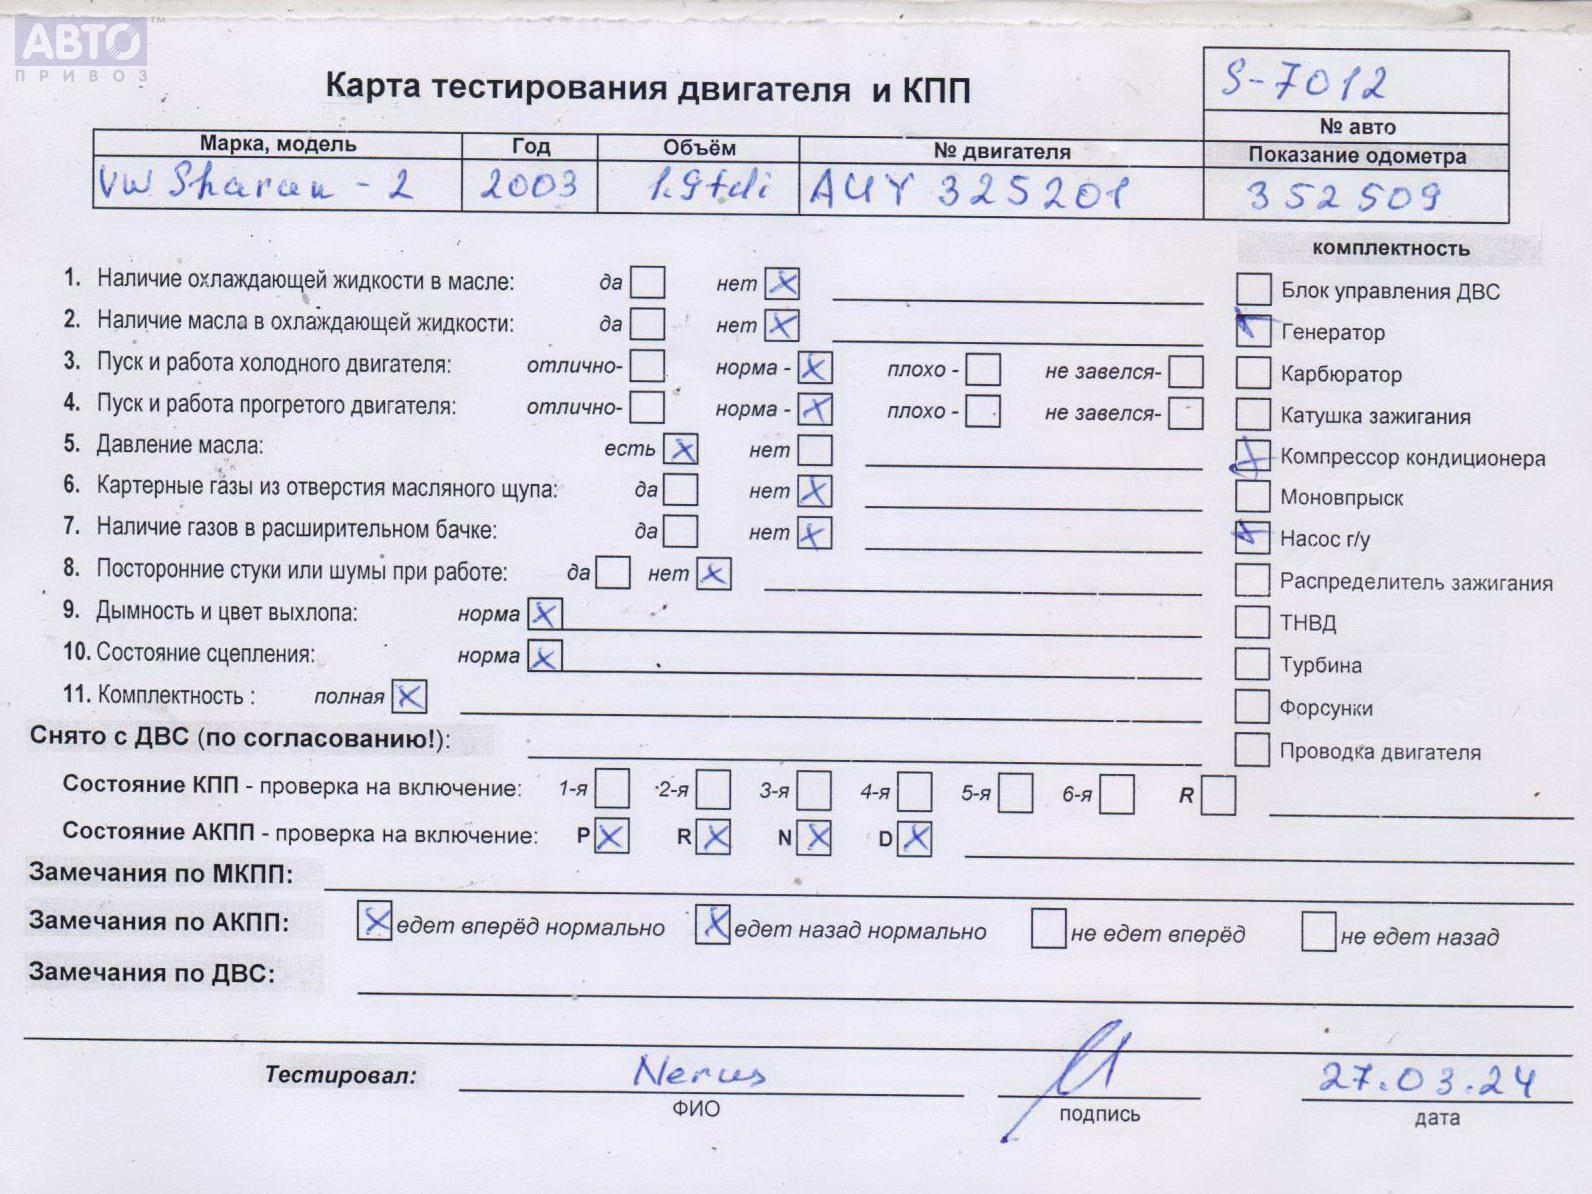 АВТО™
ПРИВОЗ
Карта тестирования двигателя и КПП
S-7012
№ авто
Марка, модель Год Объём № двигателя Показание одометра
VW Sharan - 2 2003 1.9tdi AUY 325201 352509
комплектность
1. Наличие охлаждающей жидкости в масле: да нет
Блок управления ДВС
2. Наличие масла в охлаждающей жидкости: да нет
Генератор
3. Пуск и работа холодного двигателя: отлично- норма - плохо - не завелся-
Карбюратор
4. Пуск и работа прогретого двигателя: отлично- норма - плохо - не завелся-
Катушка зажигания
5. Давление масла: есть нет
Компрессор кондиционера
6. Картерные газы из отверстия масляного щупа: да нет
Моновпрыск
7. Наличие газов в расширительном бачке: да нет
Насос г/у
8. Посторонние стуки или шумы при работе: да нет
Распределитель зажигания
9. Дымность и цвет выхлопа: норма
ТНВД
10. Состояние сцепления: норма
Турбина
11. Комплектность : полная
Форсунки
Снято с ДВС (по согласованию!):
Проводка двигателя
Состояние КПП - проверка на включение: 1-я 2-я 3-я 4-я 5-я 6-я R
Состояние АКПП - проверка на включение: P R N D
Замечания по МКПП:
Замечания по АКПП: едет вперёд нормально едет назад нормально не едет вперёд не едет назад
Замечания по ДВС:
Тестировал: Nerus 27.03.24
ФИО подпись дата